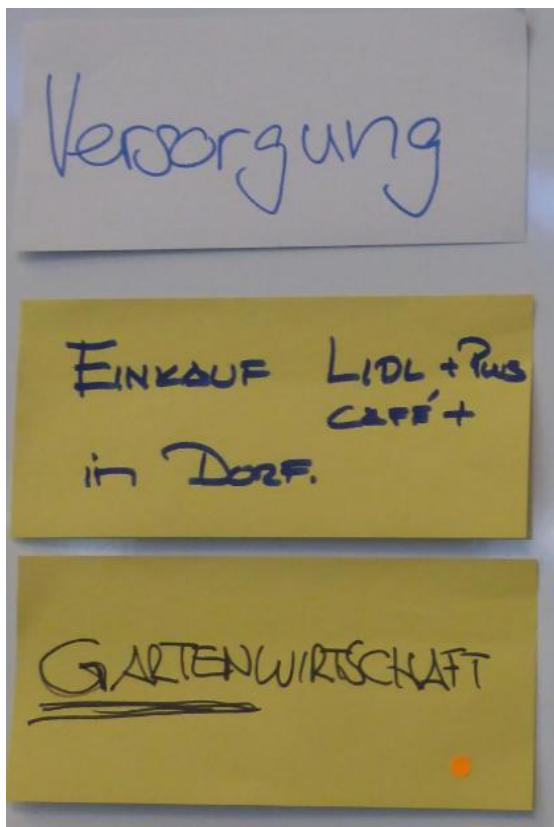 Versorgung
EINKAUF LIDL + PLUS
CAFÉ +
in DORF.
GARTENWIRTSCHAFT